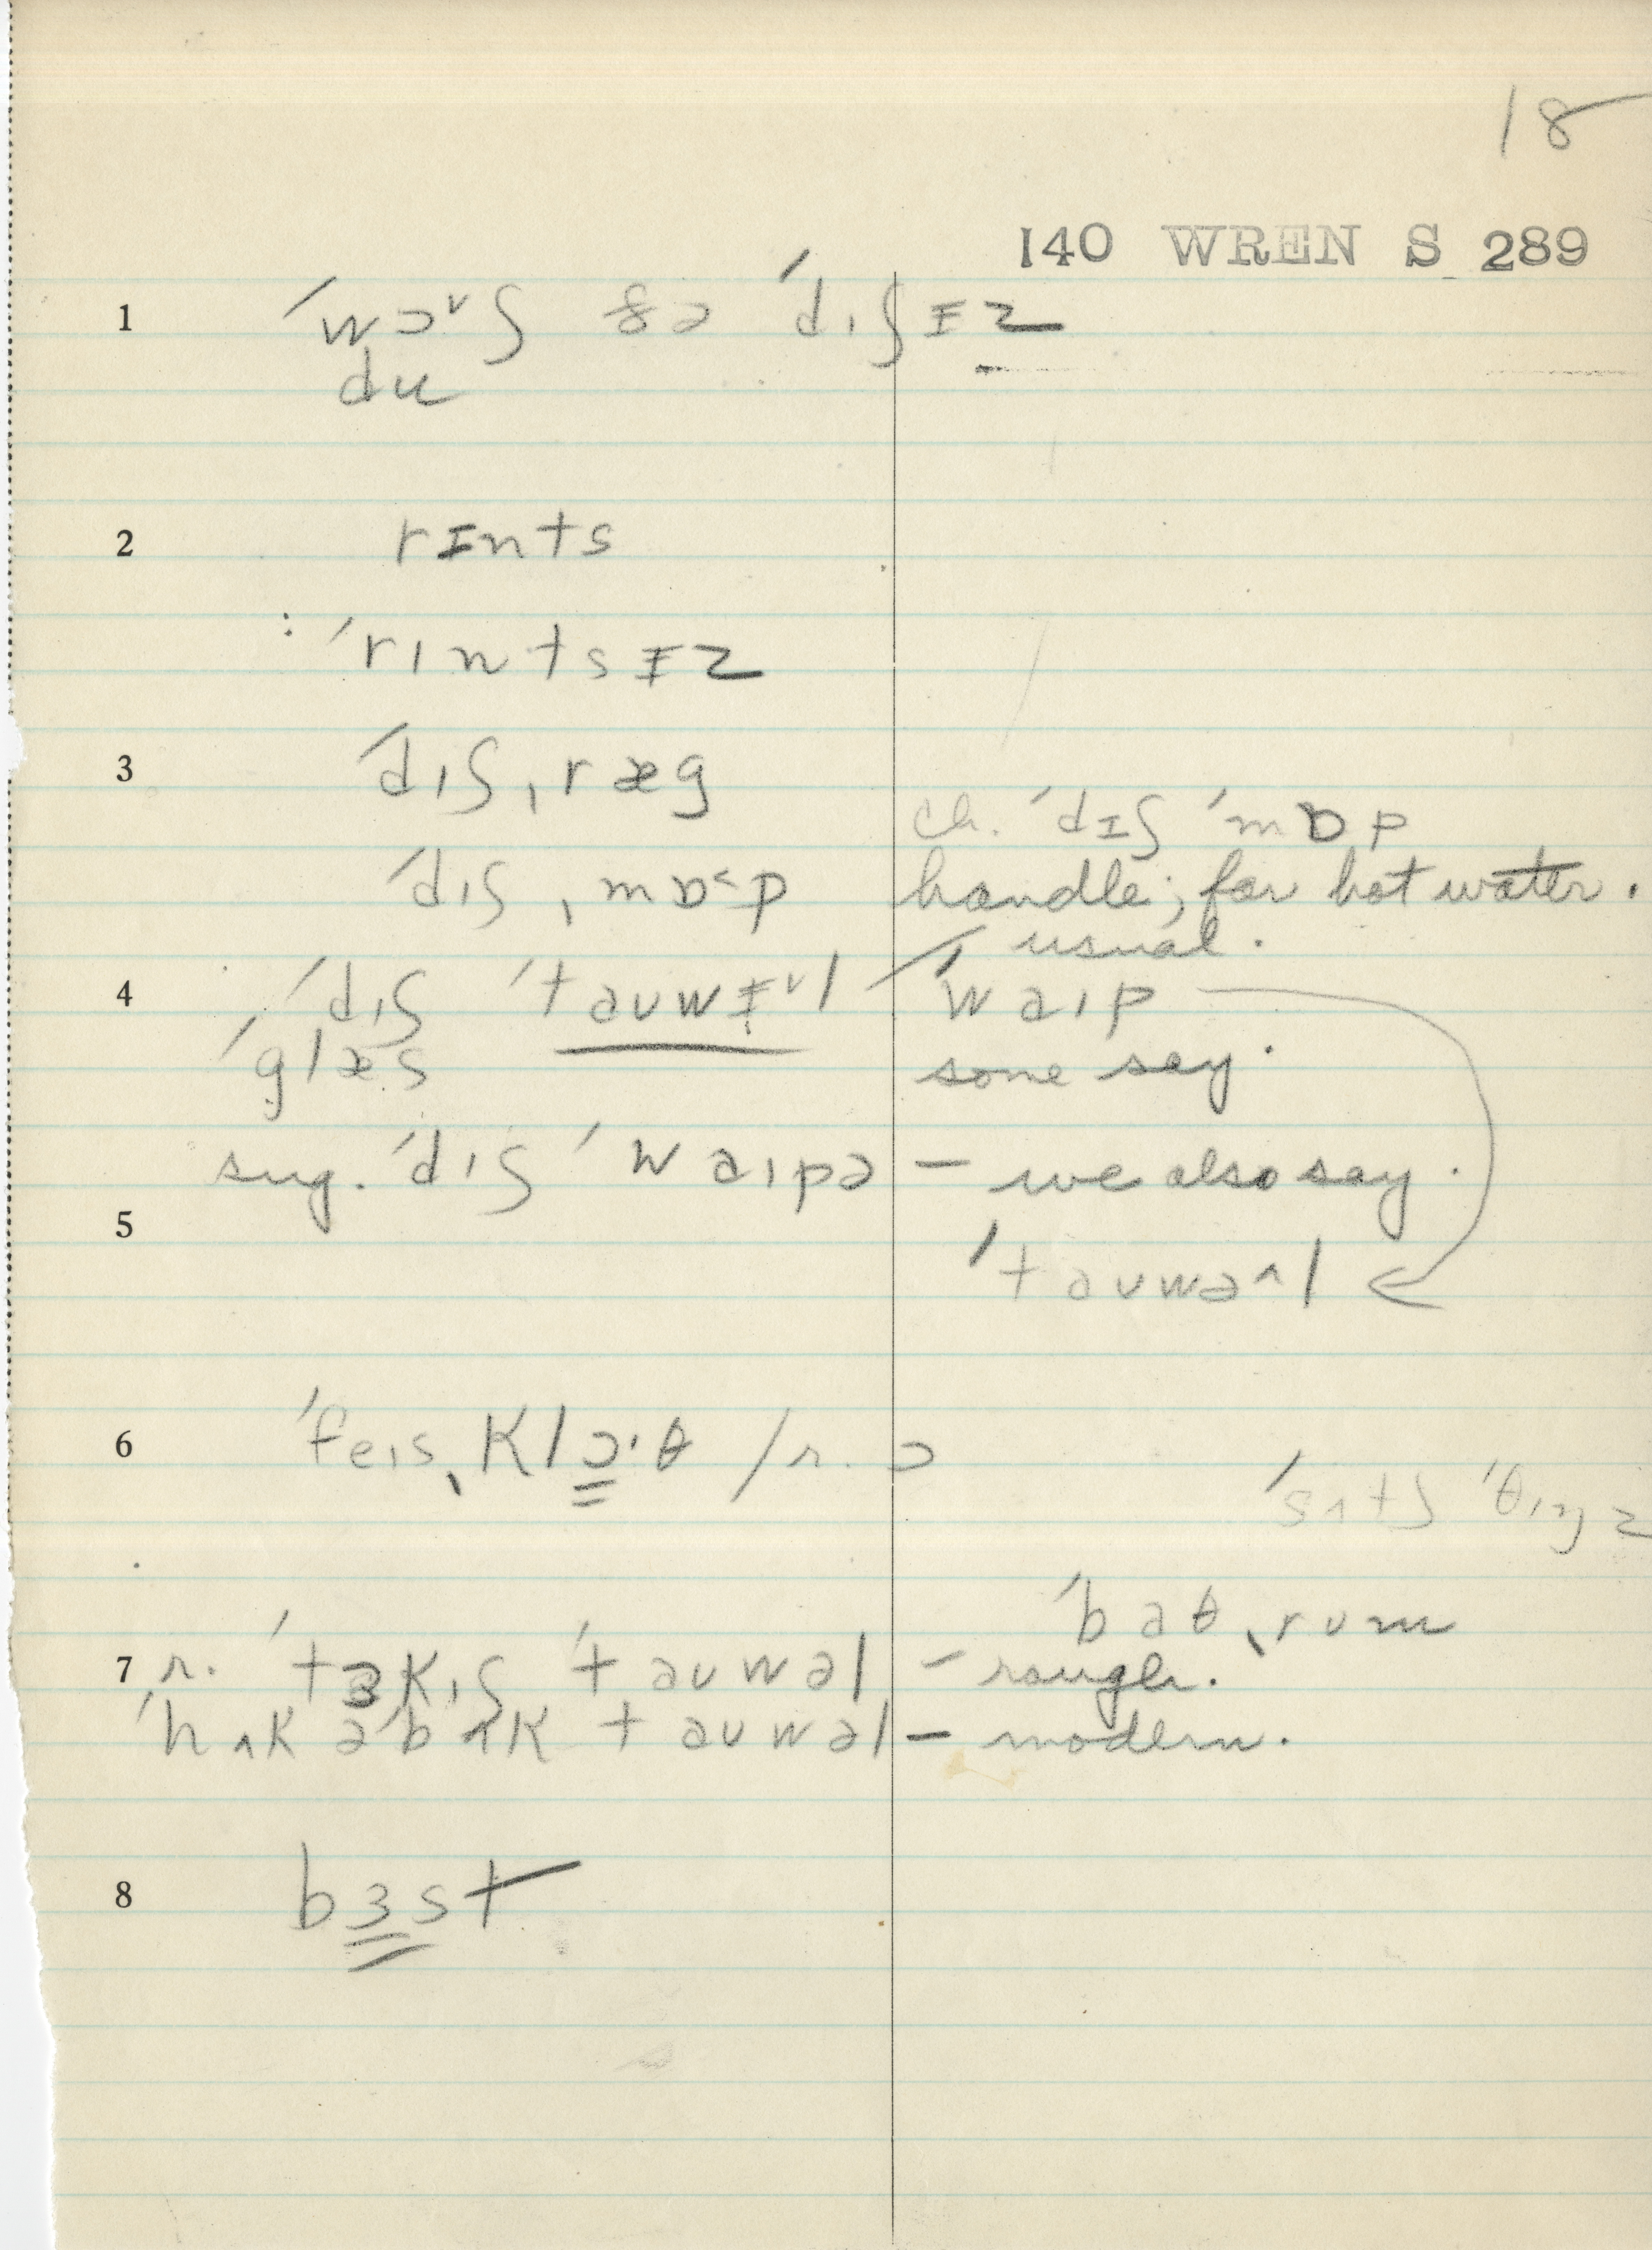 18
140 WREN S 289
1 ˈwɔᵛʃ ðə ˈdɪʃɪz
du
2 rɪnts
: ˈrɪntsɪz
3 ˈdɪʃˌræg
ch. ˈdɪʃ ˈmɒp
ˈdɪʃˌmɒ˂p handle; for hot water.
usual.
4 ˈdɪʃ ˈtaʊwɪᵛl / ˈwaɪp
ˈglæs some say.
sug. ˈdɪʃ ˈwaɪpə – we also say.
5 ˈtaʊwə^l
6 ˈfeɪsˌklɔ·θ / r. ɔ
ˈsʌtʃ ˈθɪŋz
ˈbaθˌrum
7 r. ˈtɜkɪʃ ˈtaʊwəl – rough.
ˈhʌkəˈbʌk taʊwəl – modern.
8 bɜst